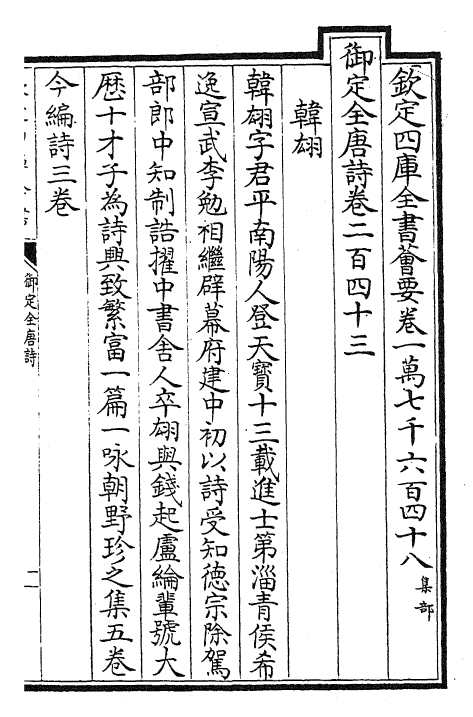 欽定四庫全書薈要卷一萬七千六百四十八
集部
御定全唐詩卷二百四十三
韓翃
韓翃字君平南陽人登天寳十三載進士第淄青侯希
逸宣武李勉相繼辟幕府建中初以詩受知徳宗除駕
部郎中知制誥擢中書舎人卒翃與錢起盧綸輩號大
厯十才子為詩興致繁富一篇一咏朝野珍之集五卷
今編詩三卷
御定全唐詩
一